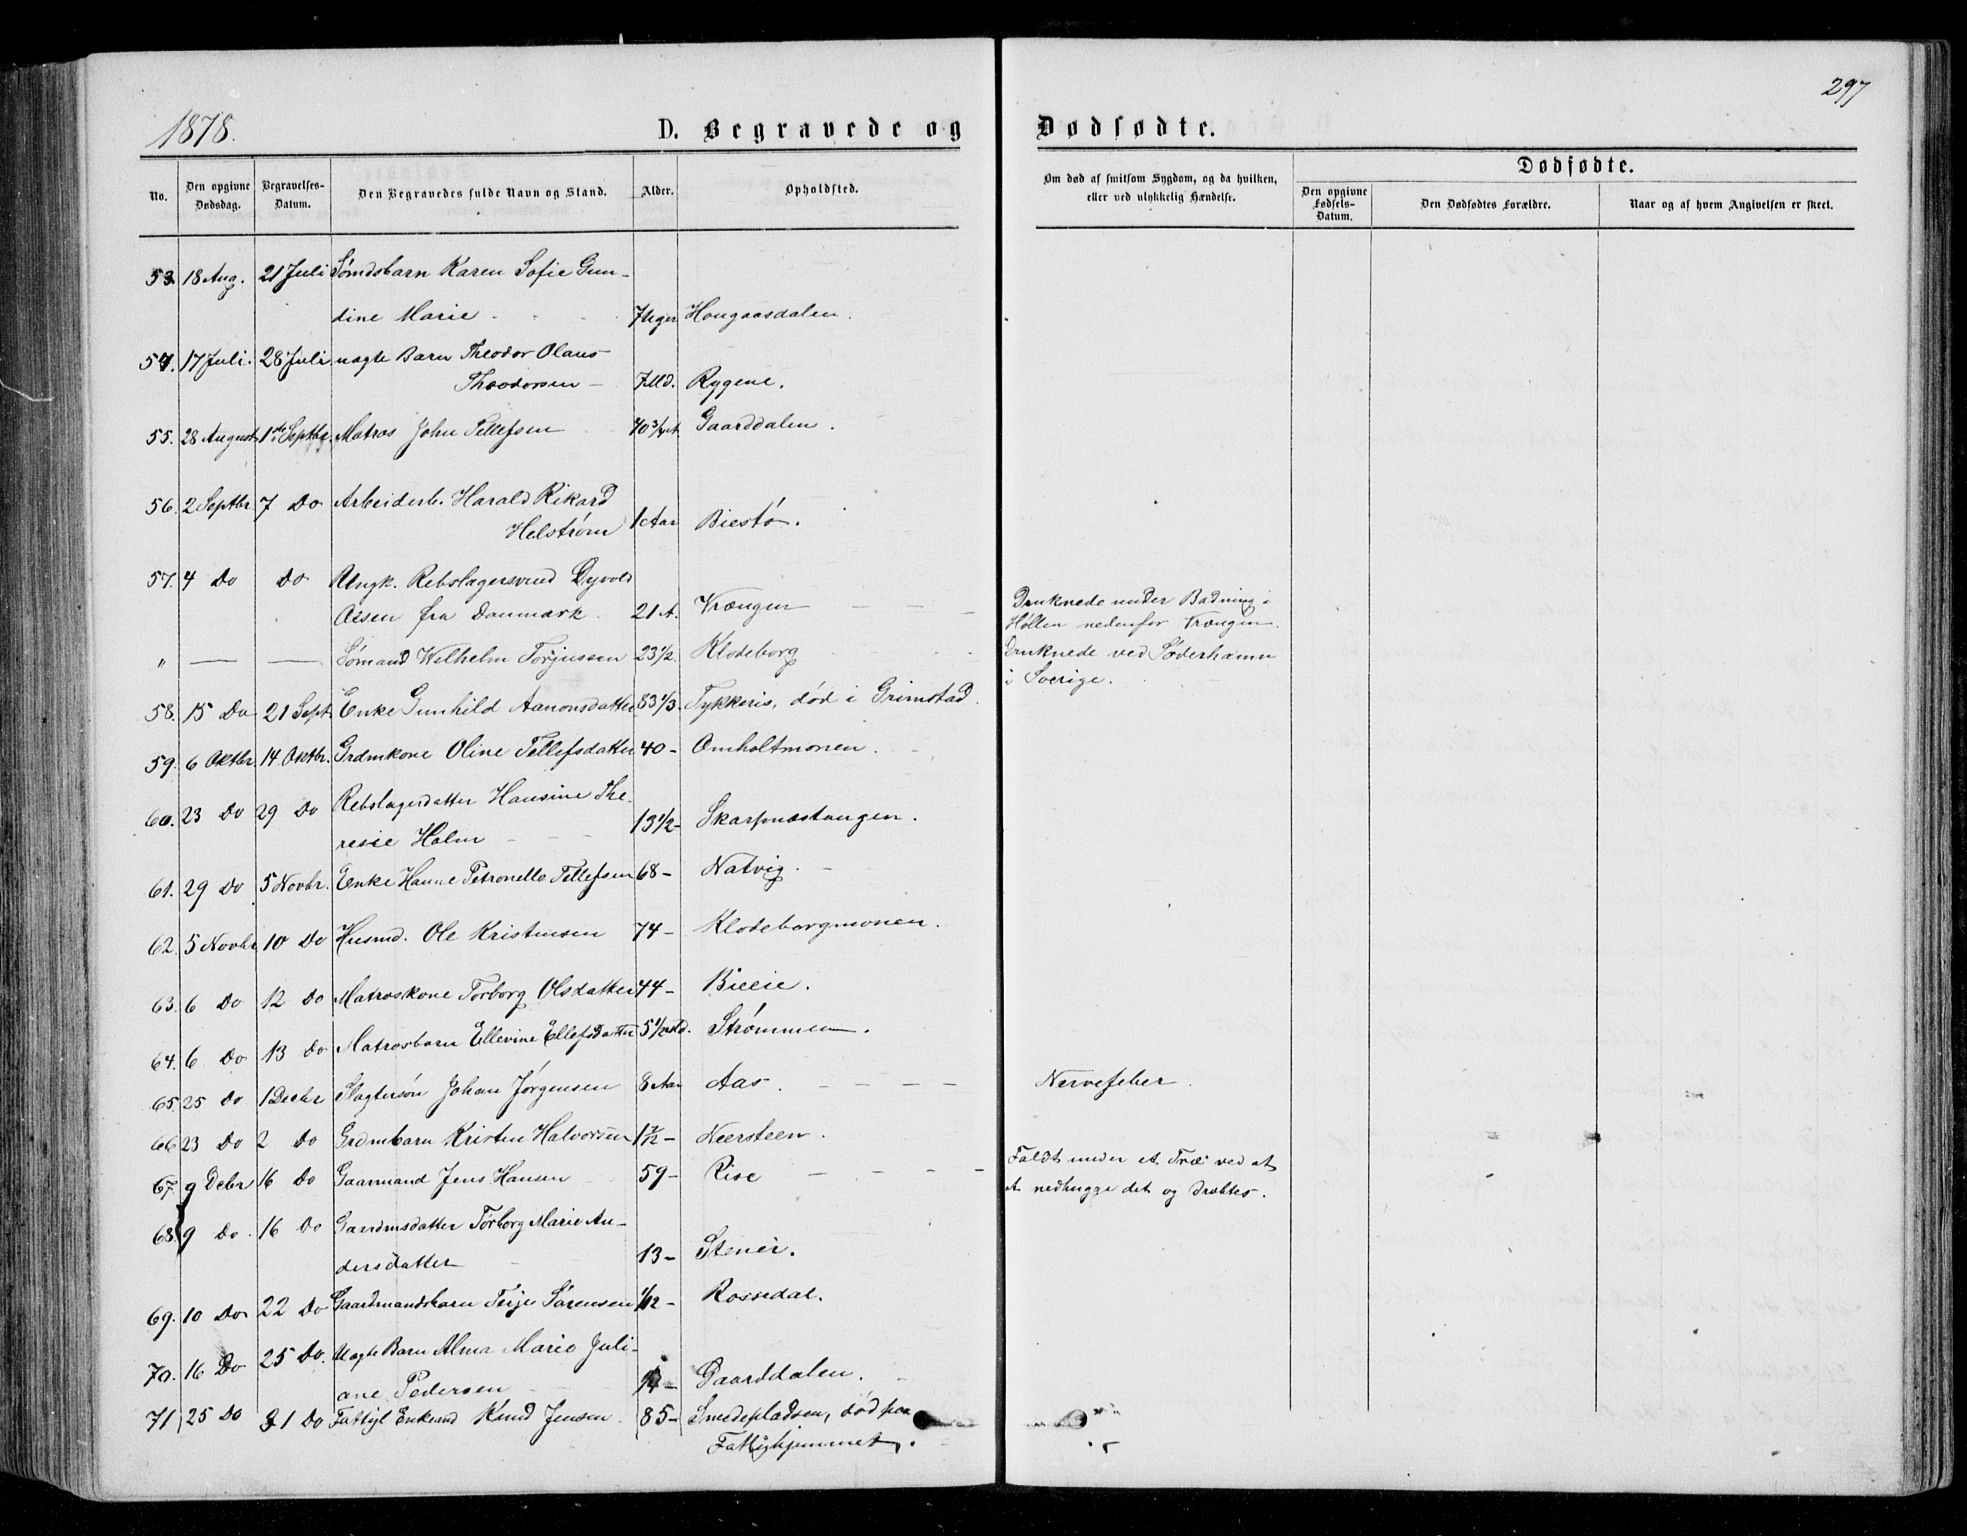 297
1878.
D. Begravede og Dødfødte.
No.
Den opgivne Dødsdag.
Begravelses-Datum.
Den Begravedes fulde Navn og Stand.
Alder.
Opholdsted.
Om død af smitsom Sygdom, og da hvilken, eller ved ulykkelig Hændelse.
Dødfødte.
Den opgivne Fødsels-Datum.
Den Dødfødtes Forældre.
Naar og af hvem Angivelsen er skeet.
53. 18 Aug. 21 Juli Sømdsbarn Karen Sofie Gun-
dine Marie 7 Uger Hougaasdalen.
54. 17 Juli. 28 Juli uægte Barn Theodor Olaus
Theodorsen 7 Md. Rygene.
55. 28 August 1ste Septbr. Matros John Tellefsen 40 3/4 A. Gaarddalen.
56. 2 Septbr. 7 Do Arbeiderb. Harald Rikard
Helstrøm 1 Aar Biestø.
57. 4 Do Do Ungk. Rebslagersvend Dyvold
Assen fra Danmark. 21 A. Vrængen Druknede under Badning i
Høllen nedenfor Vrængen.
" Sømand Wilhelm Torjussen 23 1/2. Klodeborg Druknede ved Søderhamn
i Sverige.
58. 15 Do 21 Sept. Enke Gunhild Aanonsdatter 83 1/3. Tykkeris, død i Grimstad.
59. 6 Oktbr. 14 Oktbr. Grdmkone Oline Tellefsdatter 40 - Omholtmonen.
60. 23 Do 29 Do Rebslagerdatter Hansine The-
resie Holm 13 1/2 - Skarpnæstangen.
61. 29 Do 5 Novbr. Enke Hanne Petronelle Tellefsen 68 - Natvig.
62. 5 Novbr 10 Do Husmd. Ole Kristensen 74 - Klodeborgmonen.
63. 6 Do 12 Do Matroskone Torborg Olsdatter 44 - Bieeie.
64. 6 Do 13 Do Matrosbarn Ellevine Ellefsdatter 5 1/2 Md. Strømmen.
65. 25 Do 1 Decbr Slagtersøn Johan Jørgensen 8 Aar Aas. Nervefeber.
66. 23 Do 2 Do Grdmbarn Kristen Halvorsen 1 7/12 - Neersteen.
67. 9 Debr 16 Do Gaarmand Jens Hansen 59 - Rise Faldt under et Træ ved at
at nedhugge det og dræbtes.
68. 9 Do. 16 Do Gaardmsdatter Torborg Marie An-
dersdatter 13 - Stener.
69. 10 Do 22 Do Gaardmandsbarn Terje Sørensen 1/12 - Rossedal.
70. 16 Do 25 Do. Uægte Barn Alma Marie Juli-
ane Pedersen Gaarddalen.
71 25 Do 31 Do Fattigl Enkemd Knud Jensen 85 - Smedepladsen, død paa
Fattighjemmet.